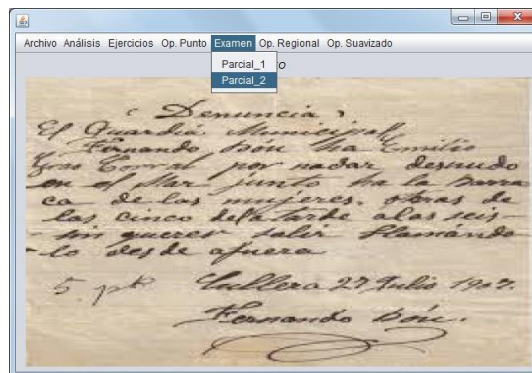 Archivo Análisis Ejercicios Op. Punto Examen Op. Regional Op. Suavizado
Parcial_1
Parcial_2
Denuncia
El Guardia Municipal
Fernando Bón ha Emilio
Grao Corral por nadar desnudo
en el Mar junto ha la Barra
ca de las mujeres. otras de
las cinco de la tarde a las seis
sin querer salir llamando
lo desde afuera
5. pts Cullera 27 Julio 1907.
Fernando Bón.